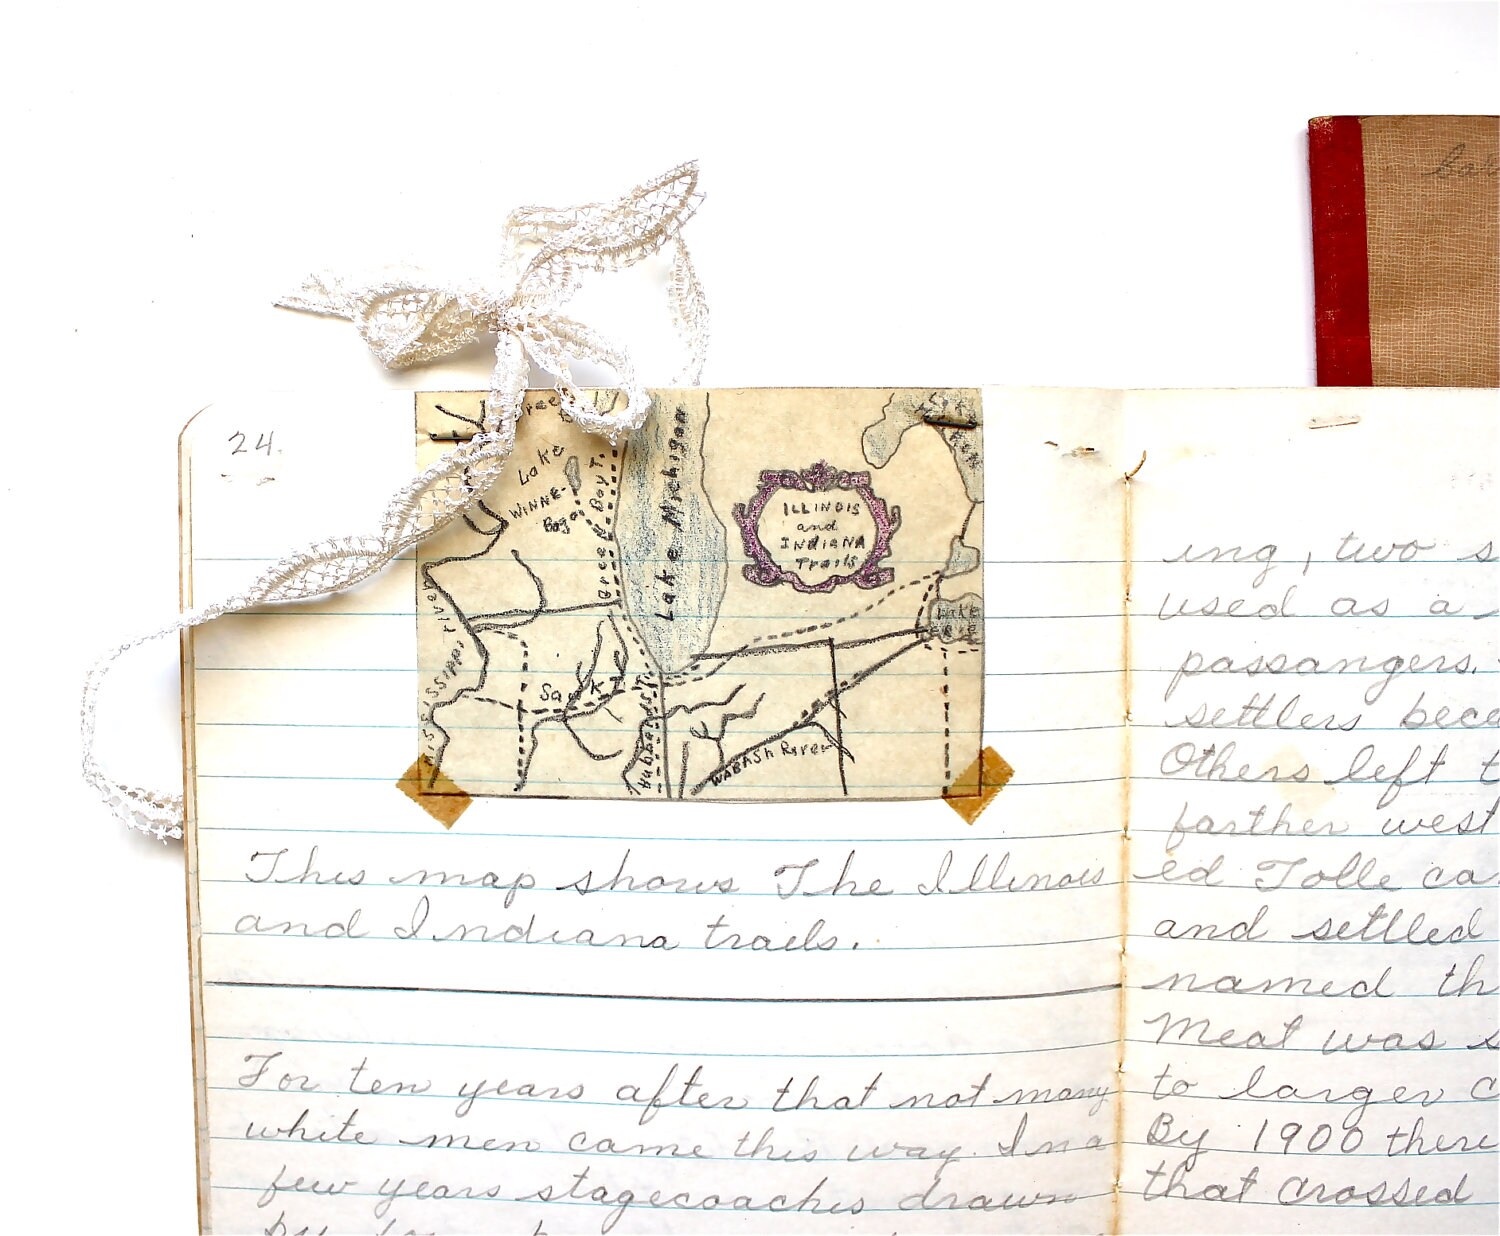 24.
Lake
WINNE-
Bago
Green Bay T.
Lake Michigan
ILLINOIS
and
INDIANA
Trails
Lake
Erie
Mississippi River
Sauk T.
Hubbards T.
WABASH River
This map shows The Illinois
and Indiana trails.
For ten years after that not many
white men came this way. In a
few years stagecoaches drawn
ing, two s
used as a
passangers.
settlers bece
Others left t
farther west
ed Tolle ca
and settled
named th
Meat was s
to larger c
By 1900 there
that crossed
bar